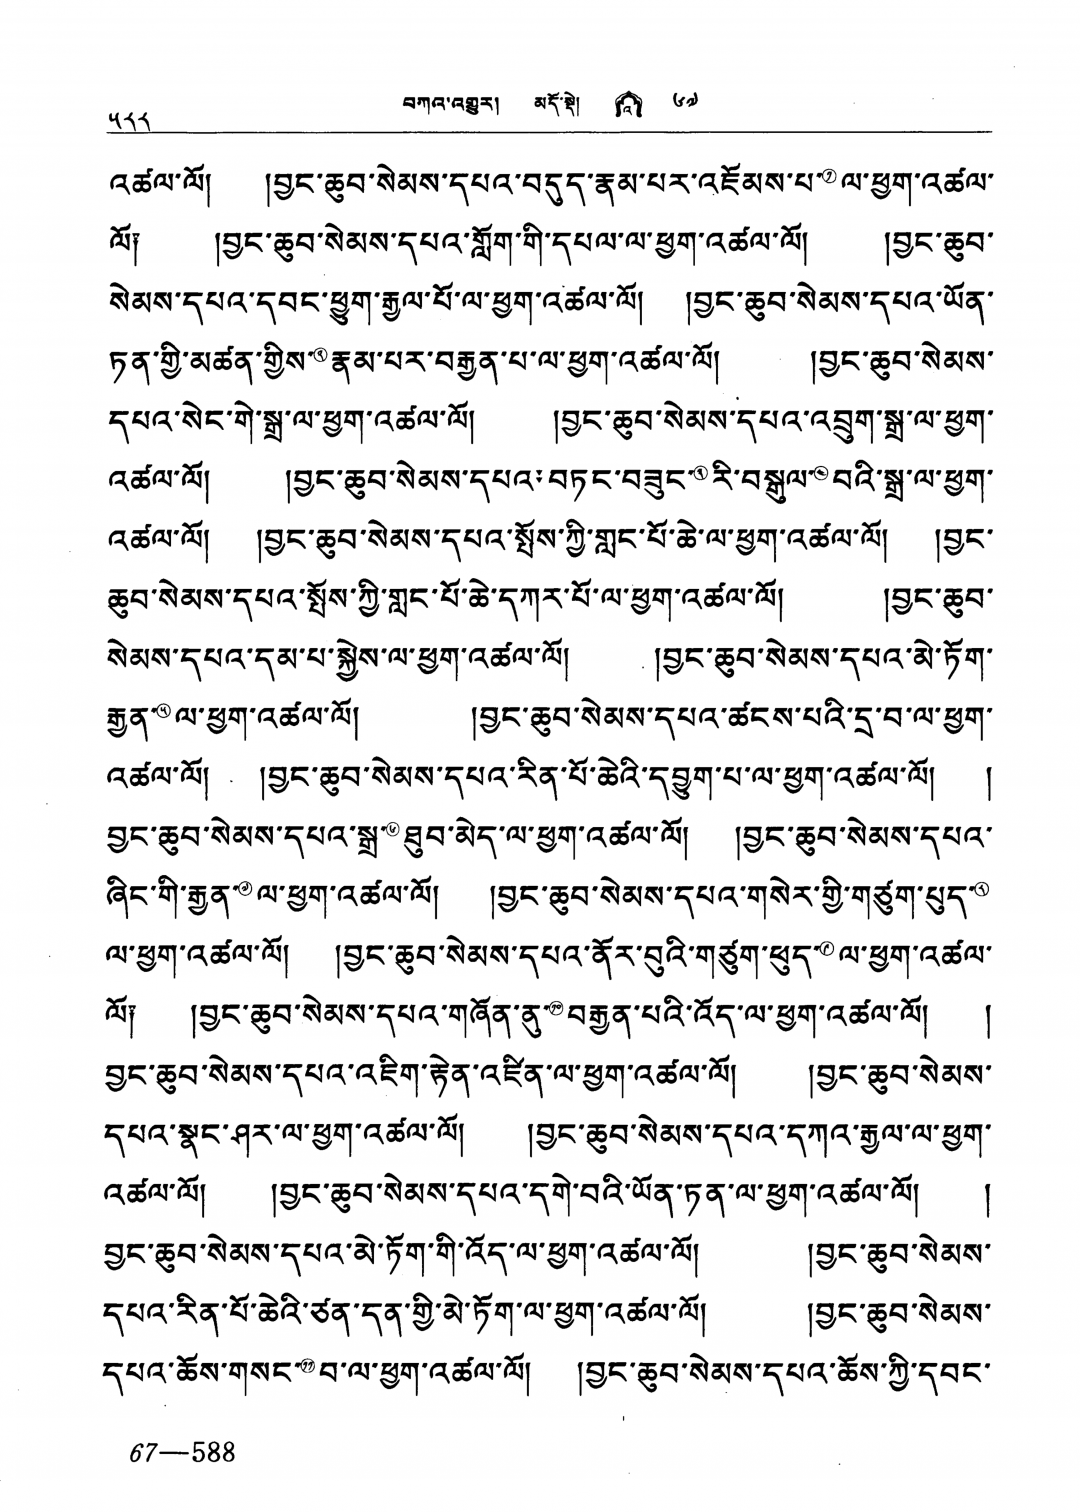 ༥༨༨ བཀའ་འགྱུར། མདོ་སྡེ། འ ༦༧
འཚལ་ལོ། །བྱང་ཆུབ་སེམས་དཔའ་བདུད་རྣམ་པར་འཇོམས་པ་⑦ལ་ཕྱག་འཚལ་
ལོ༔ །བྱང་ཆུབ་སེམས་དཔའ་གློག་གི་དཔལ་ལ་ཕྱག་འཚལ་ལོ། །བྱང་ཆུབ་
སེམས་དཔའ་དབང་ཕྱུག་རྒྱལ་པོ་ལ་ཕྱག་འཚལ་ལོ། །བྱང་ཆུབ་སེམས་དཔའ་ཡོན་
ཏན་གྱི་མཚན་གྱིས་༡རྣམ་པར་བརྒྱན་པ་ལ་ཕྱག་འཚལ་ལོ། །བྱང་ཆུབ་སེམས་
དཔའ་སེང་གེ་སྒྲ་ལ་ཕྱག་འཚལ་ལོ། །བྱང་ཆུབ་སེམས་དཔའ་འབྲུག་སྒྲ་ལ་ཕྱག་
འཚལ་ལོ། །བྱང་ཆུབ་སེམས་དཔའ་བཏང་བཟུང་རི་བསྒུལ་བའི་སྒྲ་ལ་ཕྱག་
འཚལ་ལོ། །བྱང་ཆུབ་སེམས་དཔའ་སྤོས་ཀྱི་གླང་པོ་ཆེ་ལ་ཕྱག་འཚལ་ལོ། །བྱང་
ཆུབ་སེམས་དཔའ་སྤོས་ཀྱི་གླང་པོ་ཆེ་དཀར་པོ་ལ་ཕྱག་འཚལ་ལོ། །བྱང་ཆུབ་
སེམས་དཔའ་དམ་པ་སྐྱེས་ལ་ཕྱག་འཚལ་ལོ། །བྱང་ཆུབ་སེམས་དཔའ་མེ་ཏོག་
རྒྱན་༥ལ་ཕྱག་འཚལ་ལོ། །བྱང་ཆུབ་སེམས་དཔའ་ཚངས་པའི་དྲ་བ་ལ་ཕྱག་
འཚལ་ལོ། །བྱང་ཆུབ་སེམས་དཔའ་རིན་པོ་ཆེའི་དབྱུག་པ་ལ་ཕྱག་འཚལ་ལོ། །
བྱང་ཆུབ་སེམས་དཔའ་སྒྲ་༦ཐུབ་མེད་ལ་ཕྱག་འཚལ་ལོ། །བྱང་ཆུབ་སེམས་དཔའ་
ཞིང་གི་རྒྱན་༧ལ་ཕྱག་འཚལ་ལོ། །བྱང་ཆུབ་སེམས་དཔའ་གསེར་གྱི་གཙུག་ཕུད་༨
ལ་ཕྱག་འཚལ་ལོ། །བྱང་ཆུབ་སེམས་དཔའ་ནོར་བུའི་གཙུག་ཕུད་༩ལ་ཕྱག་འཚལ་
ལོ༔ །བྱང་ཆུབ་སེམས་དཔའ་གཞོན་ནུ་༡༠བརྒྱན་པའི་འོད་ལ་ཕྱག་འཚལ་ལོ། །
བྱང་ཆུབ་སེམས་དཔའ་འཇིག་རྟེན་འཛིན་ལ་ཕྱག་འཚལ་ལོ། །བྱང་ཆུབ་སེམས་
དཔའ་སྣང་ཤར་ལ་ཕྱག་འཚལ་ལོ། །བྱང་ཆུབ་སེམས་དཔའ་དཀའ་རྒྱལ་ལ་ཕྱག་
འཚལ་ལོ། །བྱང་ཆུབ་སེམས་དཔའ་དགེ་བའི་ཡོན་ཏན་ལ་ཕྱག་འཚལ་ལོ། །
བྱང་ཆུབ་སེམས་དཔའ་མེ་ཏོག་གི་འོད་ལ་ཕྱག་འཚལ་ལོ། །བྱང་ཆུབ་སེམས་
དཔའ་རིན་པོ་ཆེའི་ཙན་དན་གྱི་མེ་ཏོག་ལ་ཕྱག་འཚལ་ལོ། །བྱང་ཆུབ་སེམས་
དཔའ་ཆོས་གསང་༡༡བ་ལ་ཕྱག་འཚལ་ལོ། །བྱང་ཆུབ་སེམས་དཔའ་ཆོས་ཀྱི་དབང་
67—588